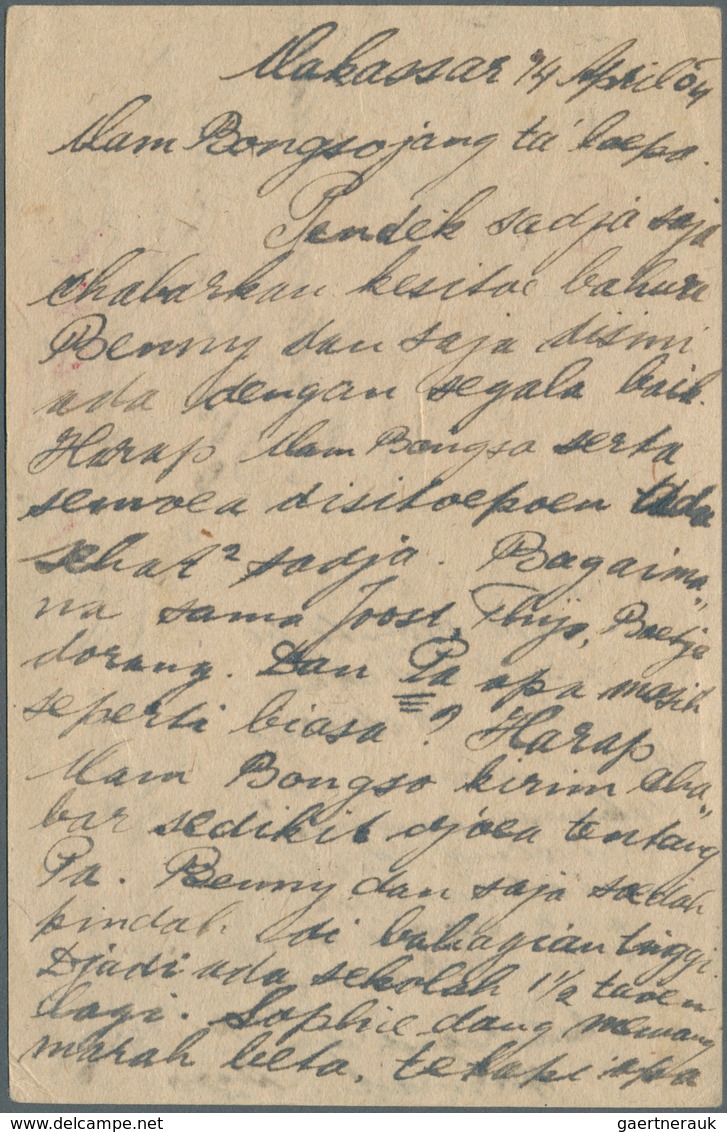 Makassar 14 April 04
Mam Bongso jang ta' loepa.
Pendek sadja saja
chabarkan kesitoe bahwa
Benny dan saja disini
ada dengan segala baik.
Harap Mam Bongso serta
semoea disitoepoen ada
sehat² sadja. Bagaima„
na sama Joost, Thijs, Boetje
dorang. Dan Pa apa masih
seperti biasa? Harap
Mam Bongso kirim cha„
bar sedikit djoea tentang
Pa. Benny dan saja soedah
pindah di bahagian tinggi.
Djadi ada sekolah 1½ taoen
lagi. Sophie dang memang
marah beta, tetapi apa
gaertnerauk